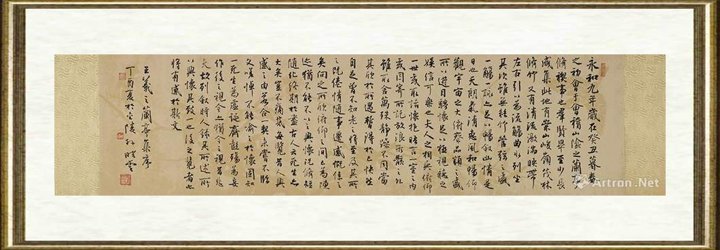 永和九年歲在癸丑暮春
之初會于會稽山陰之蘭亭
脩禊事也群賢畢至少長
咸集此地有崇山峻嶺茂林
脩竹又有清流激湍映帶
左右引以為流觴曲水列坐
其次雖無絲竹管絃之盛
一觴一詠足以暢敘幽情是
日也天朗氣清惠風和暢仰
觀宇宙之大俯察品類之盛
所以遊目騁懷足以極視聽之
娛信可樂也夫人之相與俯仰
一世或取諸懷抱悟言一室之內
或因寄所託放浪形骸之外
雖趣舍萬殊靜躁不同當
其欣於所遇暫得於己快然
自足曾不知老之將至及其所
之既倦情隨事遷感慨係之
矣向之所欣俯仰之間已為陳
迹猶不能不以之興懷況脩短
隨化終期於盡古人云死生亦
大矣豈不痛哉每覽昔人興
感之由若合一契未嘗不臨
文嗟悼不能喻之於懷固知
一死生為虛誕齊彭殤為妄
作後之視今亦猶今之視昔悲
夫故列敘時人錄其所述所
以興懷其致一也後之覽者亦
將有感於斯文
王羲之蘭亭集序
丁酉夏於金陵孔
Artron.Net